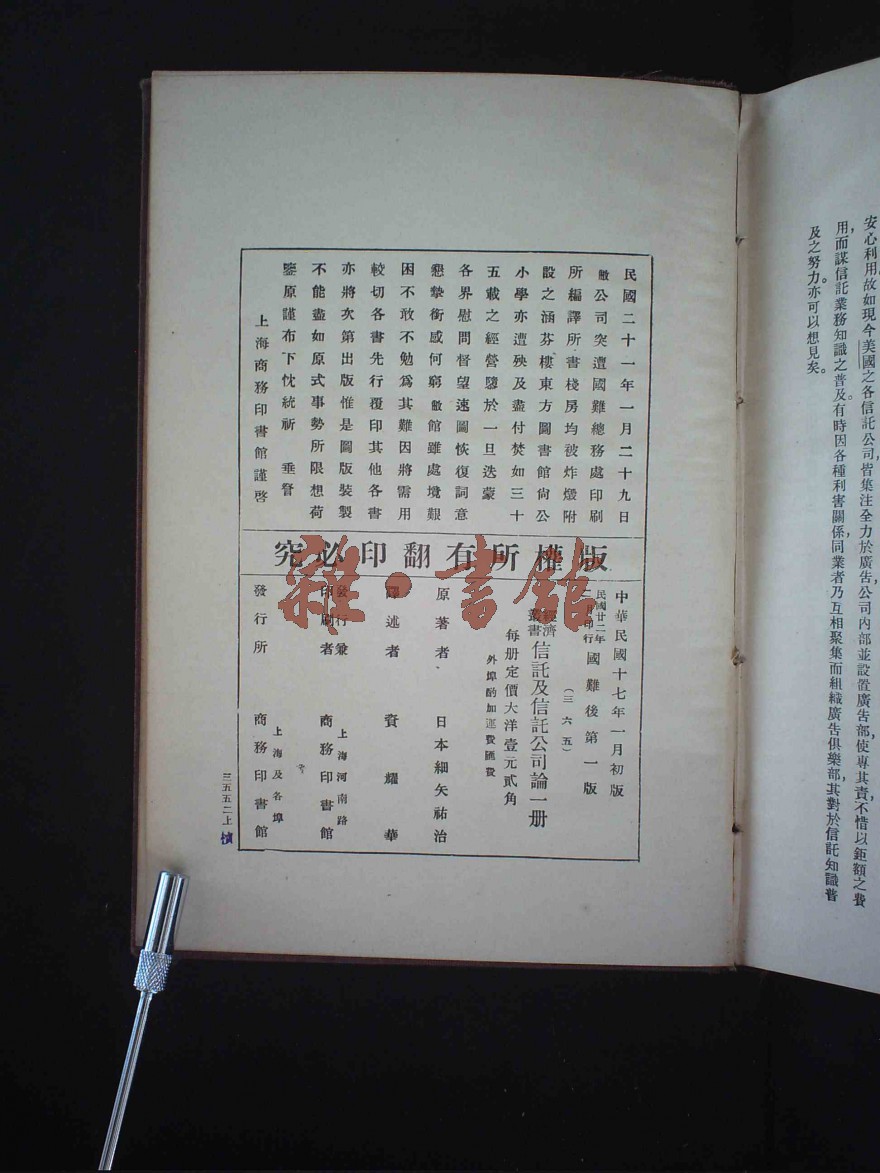 安心利用,故如現今美國之各信託公司,皆集注全力於廣告,公司內部並設置廣告部,使專其責,不惜以鉅額之費
用,而謀信託業務知識之普及,有時因各種利害關係,同業者乃互相聚集而組織廣告俱樂部,其對於信託知識普
及之努力,亦可以想見矣。
民國二十一年一月二十九日
敝公司突遭國難總務處印刷
所編譯所書棧房均被炸燬附
設之涵芬樓東方圖書館尙公
小學亦遭殃及盡付焚如三十
五載之經營隳於一旦迭蒙
各界慰問督望速圖恢復詞意
懇摯銜感何窮敝館雖處境艱
困不敢不勉爲其難因將需用
較切各書先行覆印其他各書
亦將次第出版惟是圖版裝製
不能盡如原式事勢所限想荷
鑒原謹布下忱統祈 垂詧
上海商務印書館謹啓
版權所有翻印必究
中華民國十七年一月初版
民國廿二年
印行
國難後第一版
(三六五)
經濟叢書
信託及信託公司論一册
每册定價大洋壹元貳角
外埠酌加運費匯費
原著者 日本細矢祐治
譯述者 資耀華
發行兼印刷者
上海河南路
商務印書館
發行所
上海及各埠
商務印書館
三五五二上
雜·書館